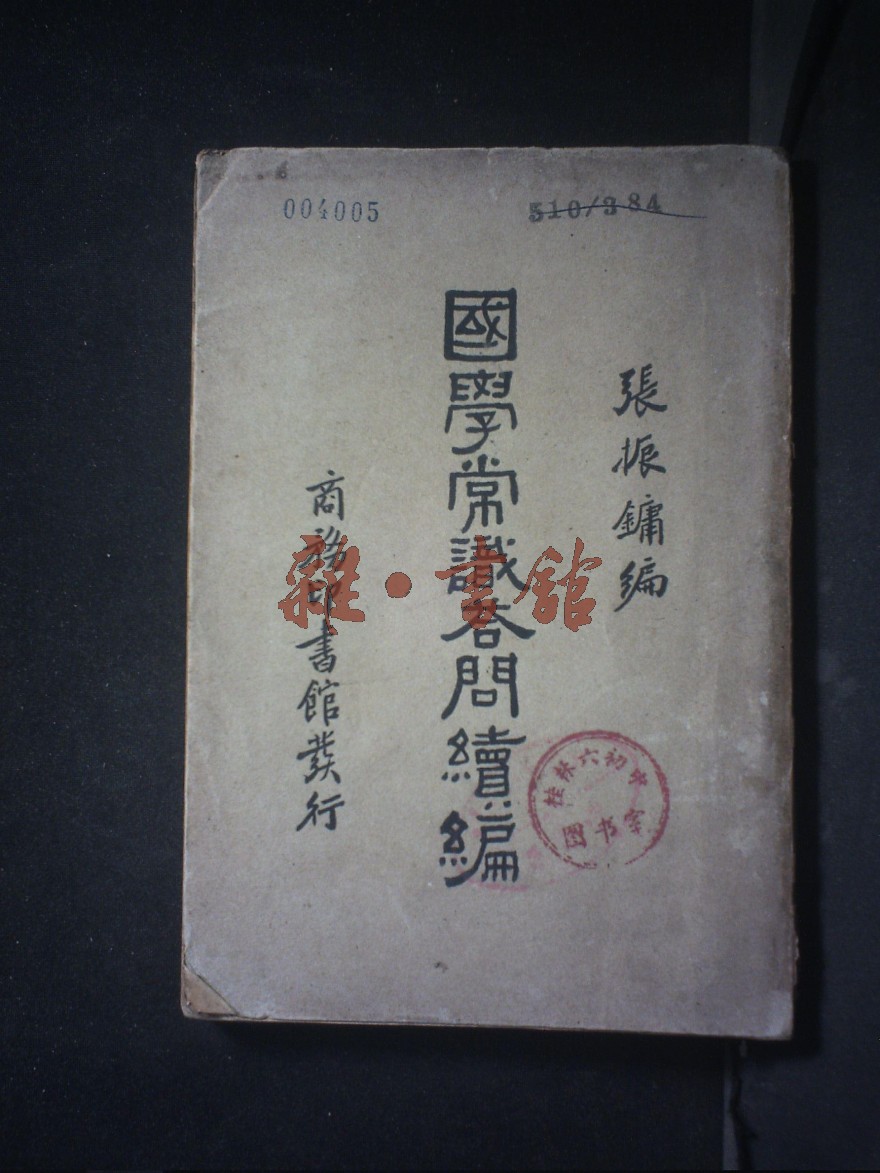 004005
510/384
張振鏞編
國學常識答問續編
商務印書館發行
雜·書館
桂林六初中
图书室